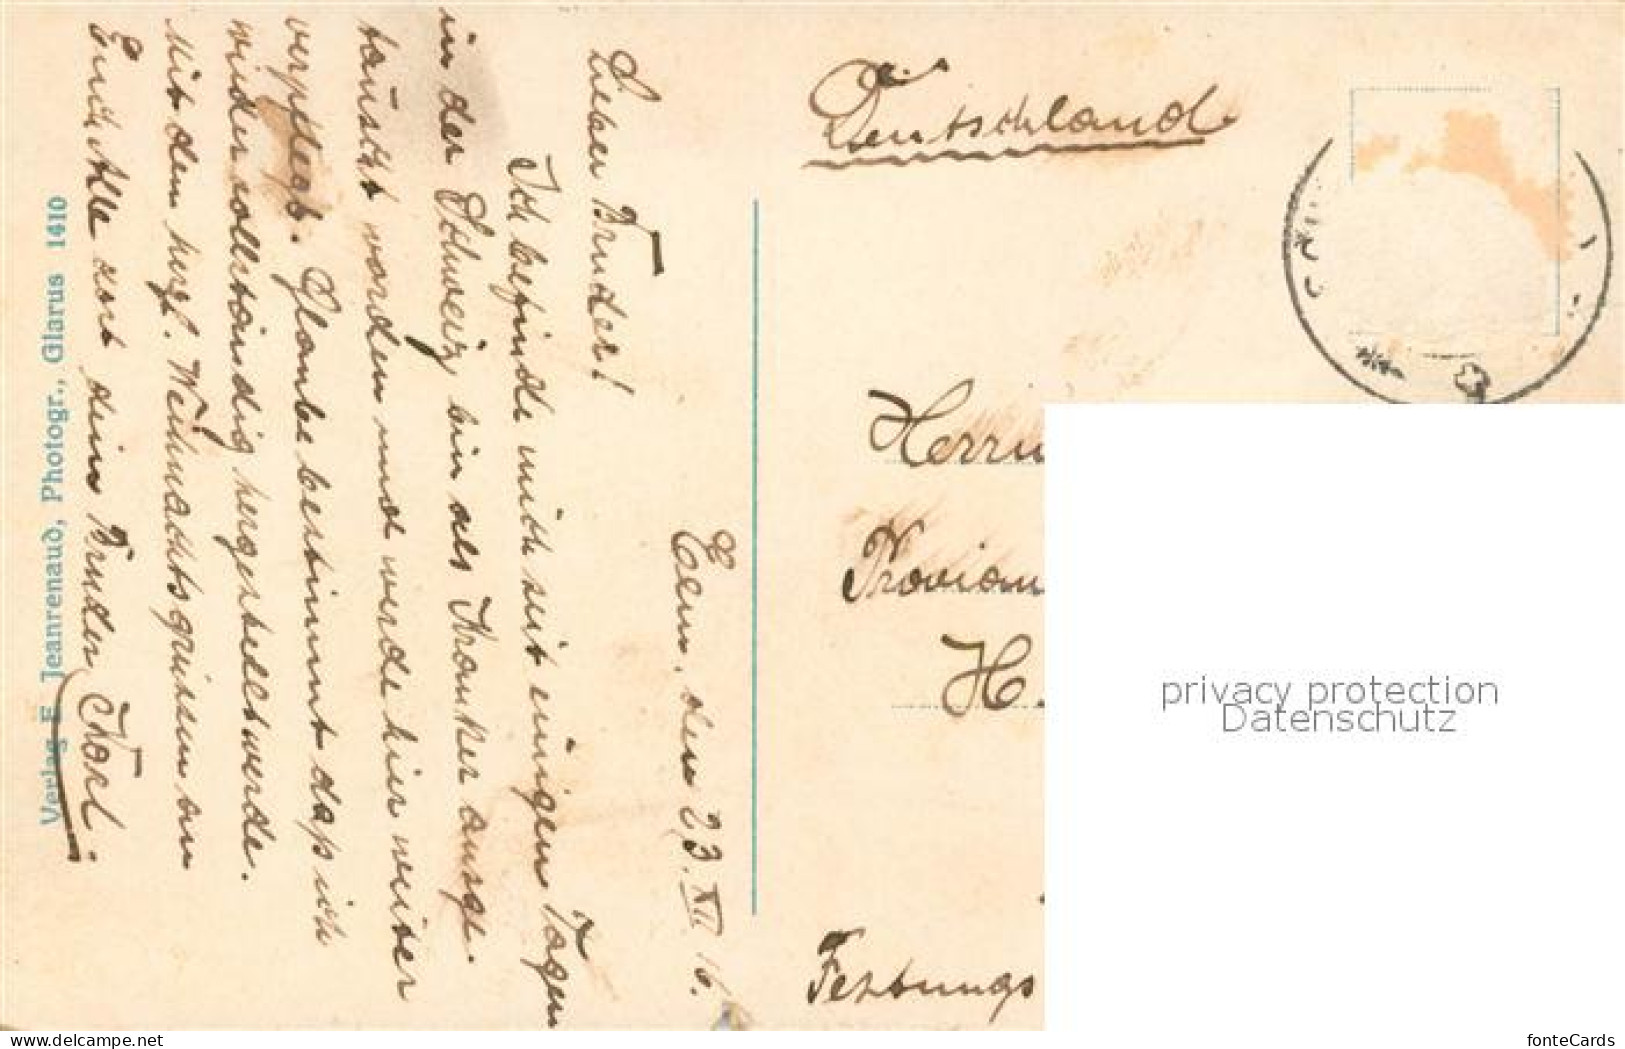 Elm, den 23. XII. 16.
Lieber Bruder!
Ich befinde mich seit einigen Tagen
in der Schweiz, bin als Kranker ausge-
tauscht worden und werde hier weiter
verpflegt. Glaube bestimmt daß ich
wieder vollständig hergestellt werde.
Mit den herzl. Weihnachtsgrüssen an
Euch Alle dort dein Bruder Karl.
Verlag E. Jeanrenaud, Photogr., Glarus 1410
Deutschland
Herrn
Provian
H.
Festungs
privacy protection
Datenschutz
www.delcampe.net
fonteCards